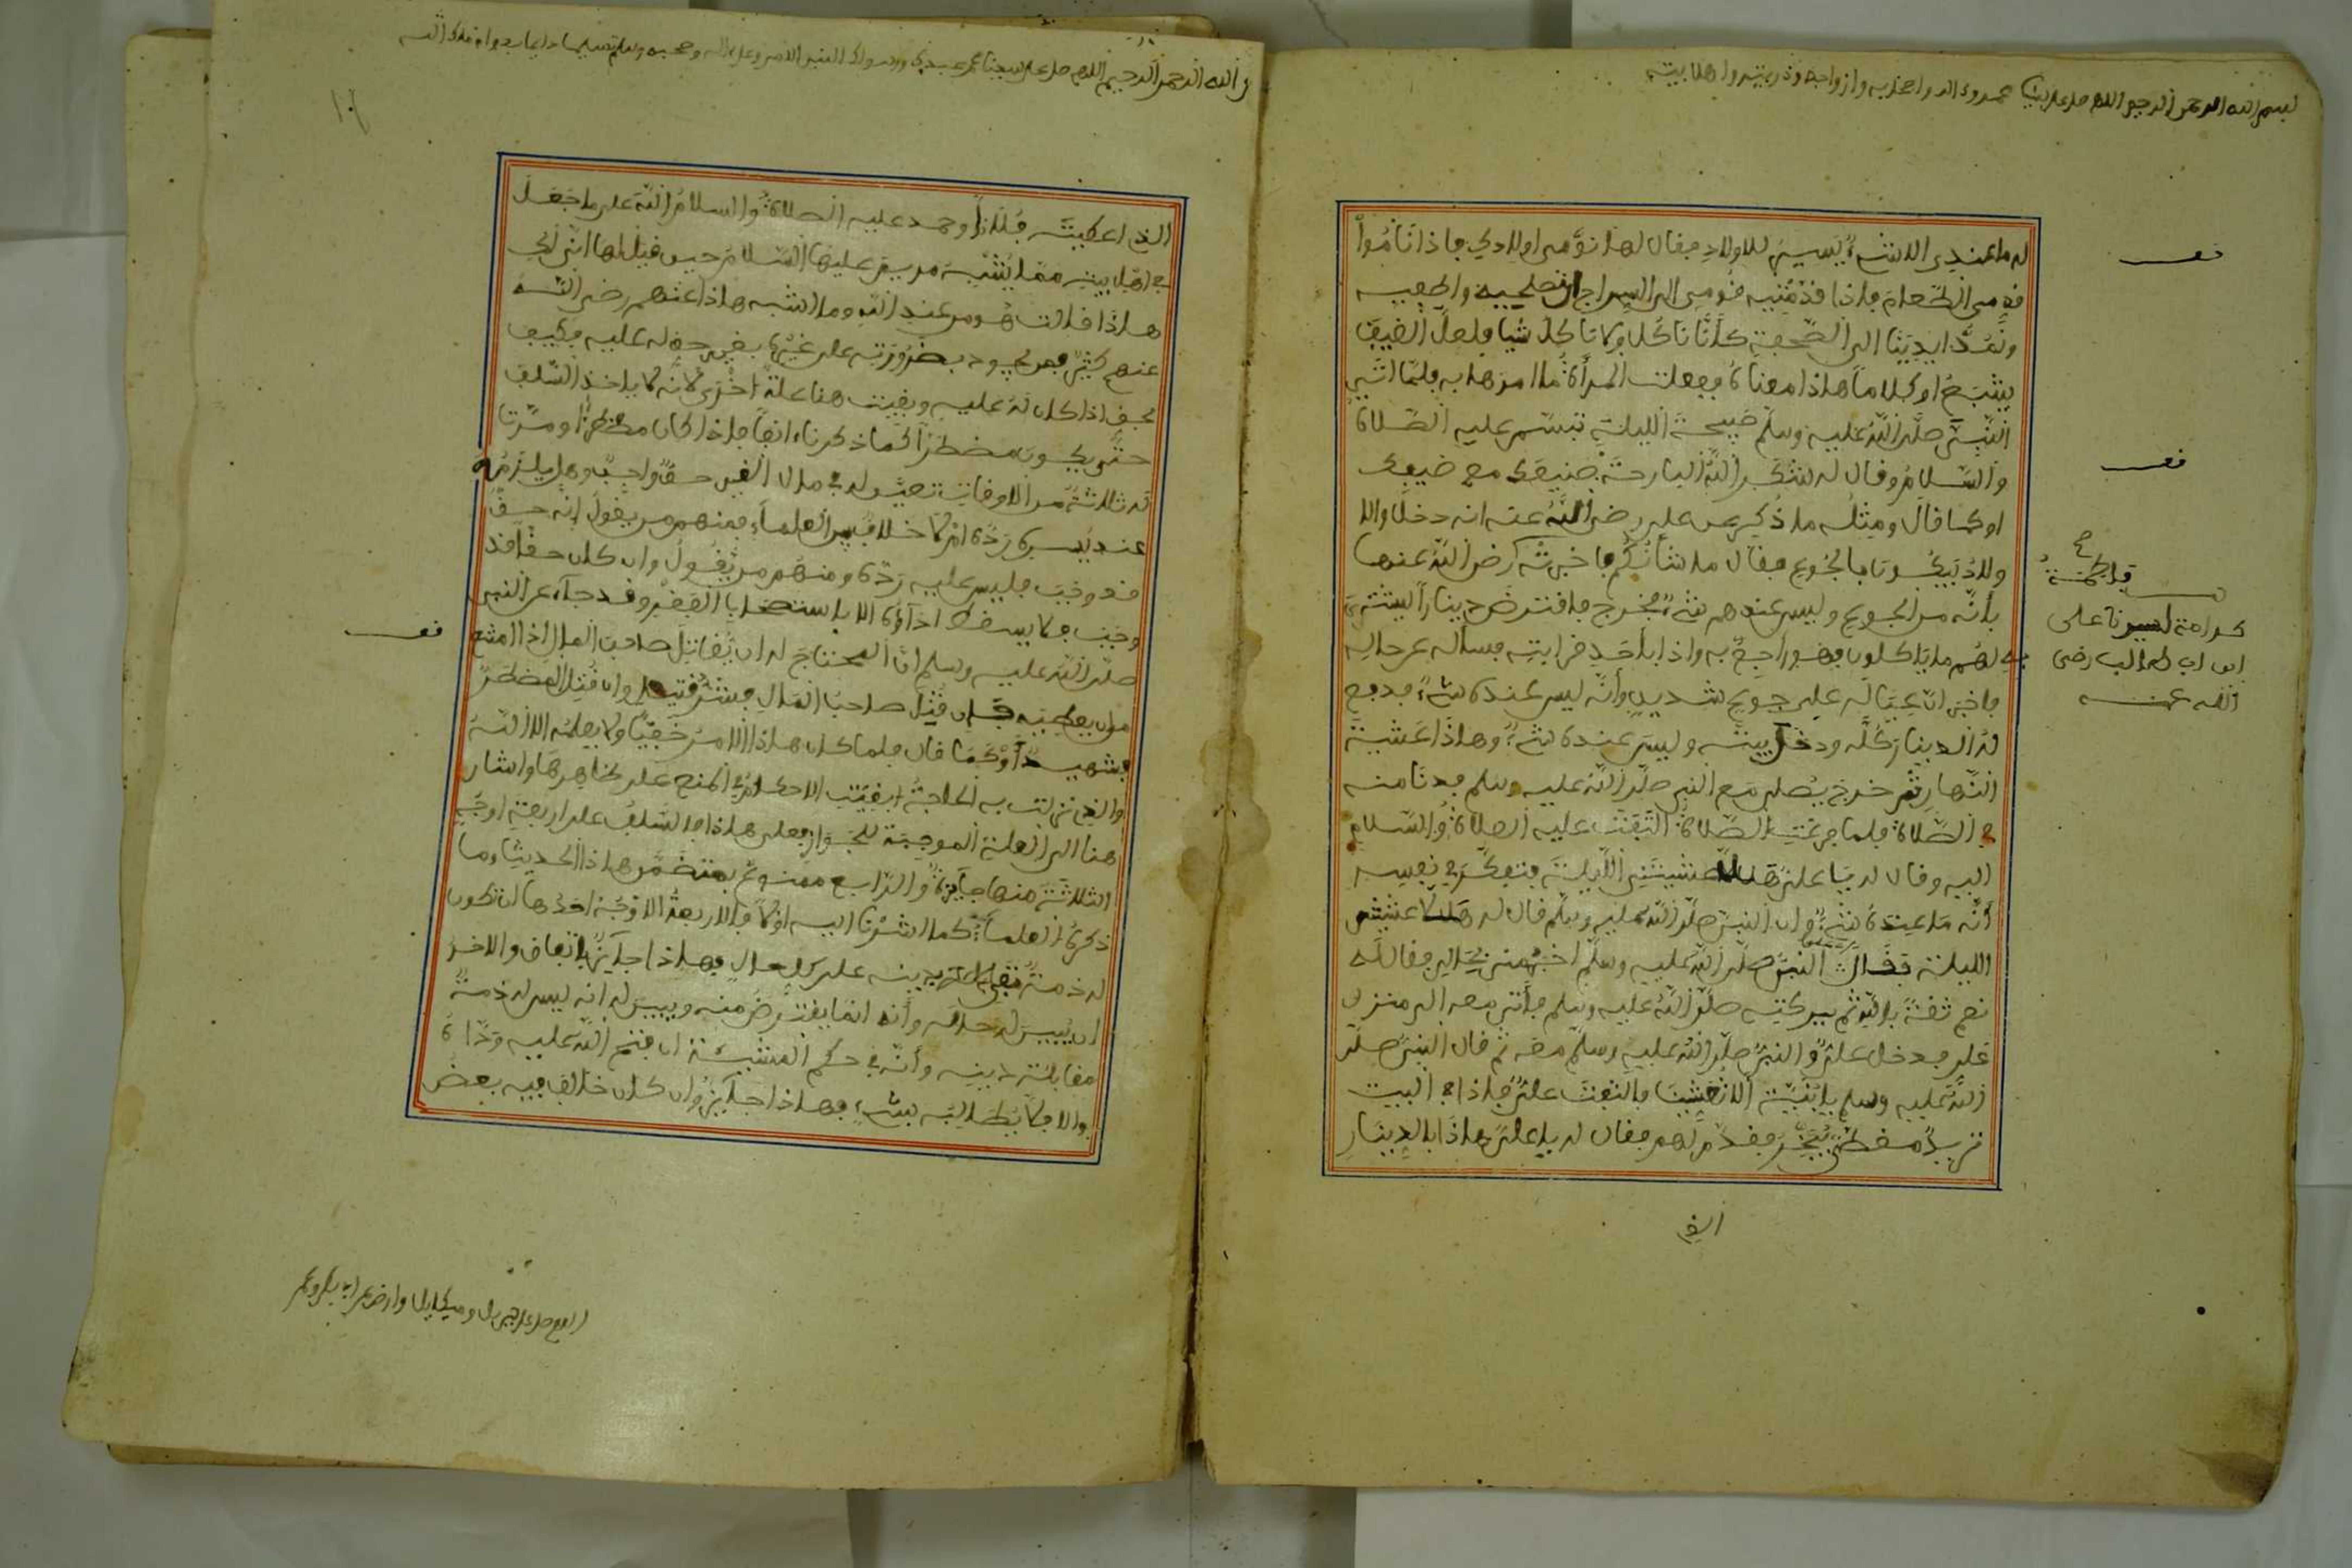 بسم الله الرحمن الرحيم اللهم صل على سيدنا محمد وعلى اله واصحابه وازواجه وذريته واهل بيته
له ما عندي الا شيء يسير للاولاد فقال لها نومى اولادي فاذا ناموا
قدمى الطعام فاذا قدمتيه قومى الى السراج تصلحيه واطفيه
ونمد ايدينا الى الصحفة كأنا ناكل ولا ناكل شيا فلعل الضيف
يشبع او كلاما هذا معناه ففعلت المرأة ما امرها به فلما اتى
النبي صلى الله عليه وسلم صبيحة الليلة تبسم عليه الصلاة
والسلام وقال له شكر الله البارحة صنيعك مع ضيفك
او كما قال ومثله ما ذكر عن على رضي الله عنه انه دخل والا
ولاد يبكون بالجوع فقال ما شأنكم فاخبرته رضي الله عنها
بأنه من الجوع وليس عندهم شيء فخرج فاقترض دينارا ليشتري
لهم ما ياكلون فهو راجع به واذا بأحد قرابته فسأله عن حاله
فاخبر ان عياله على جوع شديد وأنه ليس عنده شيء فدفع
له الدينار كله ودخل بيته وليس عنده شيء وهذا عشية
النهار ثم خرج يصلى مع النبي صلى الله عليه وسلم فدنا منه
في الصلاة فلما فرغت الصلاة التفت عليه الصلاة والسلام
اليه وقال له يا على هلا عشيتنى الليلة فتفكر في نفسه
أنه ما عنده شيء وان النبي صلى الله عليه وسلم قال له هلا عشيتنى
الليلة النبي صلى الله عليه وسلم فقال له
نعم ثقة بالله ثم ببركته صلى الله عليه وسلم فأتى معه الى منزل
على فدخل على والنبي صلى الله عليه وسلم معه ثم قال النبي صلى
الله عليه وسلم يا بنية الا تعشينا فالتفت على فاذا في البيت
ثريد مغطى يبخر فقدم لهم فقال له يا على هذا بالدينار
الذي
نعم
نعم
فاطمة
كرامة لسيدنا على
ابن ابى طالب رضى
الله عنه
بسم الله الرحمن الرحيم اللهم صل على سيدنا محمد عبدك ورسولك النبي الامي وعلى اله وصحبه وسلم تسليما دايما بدوام ملك الله
الذي اعطيته فلانا وحمد عليه الصلاة والسلام الله على ما جعل
في اهل بيته ممن يشبه مريم عليها السلام حين قيل لها انى لك
هذا قالت هو من عند الله وما اشبه هذا عنهم رضي الله
عنهم كثير فمن يجود بضرورته على غيره بغير حق له عليه فكيف
بحق اذا كان له عليه وبقيت هنا علة اخرى لانه لا ياخذ السلف
حتى يكون مضطرا كما ذكرناه انفا فاذا كان مضطرا ومرت
له ثلاثة من الاوقات تعين له في مال الغير حق واجب وهل يلزمه
عند يسره رده ام لا خلاف بين العلماء فمنهم من يقول انه حق
قد وجب فليس عليه رده ومنهم من يقول وان كان حقا قد
وجب فلا يسقط اداؤه الا وقد جاء عن النبي
صلى الله عليه وسلم ان المحتاج له ان يقاتل صاحب المال اذا امتنع
من ان يعطيه فان قتل صاحب المال فشر قتيل وان قتل المضطر
فشهيد او كما قال فلما كان هذا الامر خفيا ولا يعلمه الا الله
والذي نزلت به الحاجة بقيت الاحكام في المنع على ظاهرها واشار
هنا الى العلة الموجبة للجواز فعلى هذا فالسلف على اربعة اوجه
الثلاثة منها جايزة والرابع ممنوع يتضمن هذا الحديث وما
ذكره العلماء كما اشرنا اليه اولا فالاربعة الاوجه احدها ان تكون
له ذمة تفى له بدينه على كل حال فهذا جايز باتفاق والاخر
ان يبين له حاله وأنه انما يقترض منه ويبين له انه ليس له ذمة
مقابلة دينه وأنه في حكم المشيئة ان فتح الله عليه وداه
والا فلا يطالبه بشيء فهذا جايز وان كان خالف فيه بعض
نعم
اللهم صل على جبريل وميكايل وارض عن ابى بكر وعمر